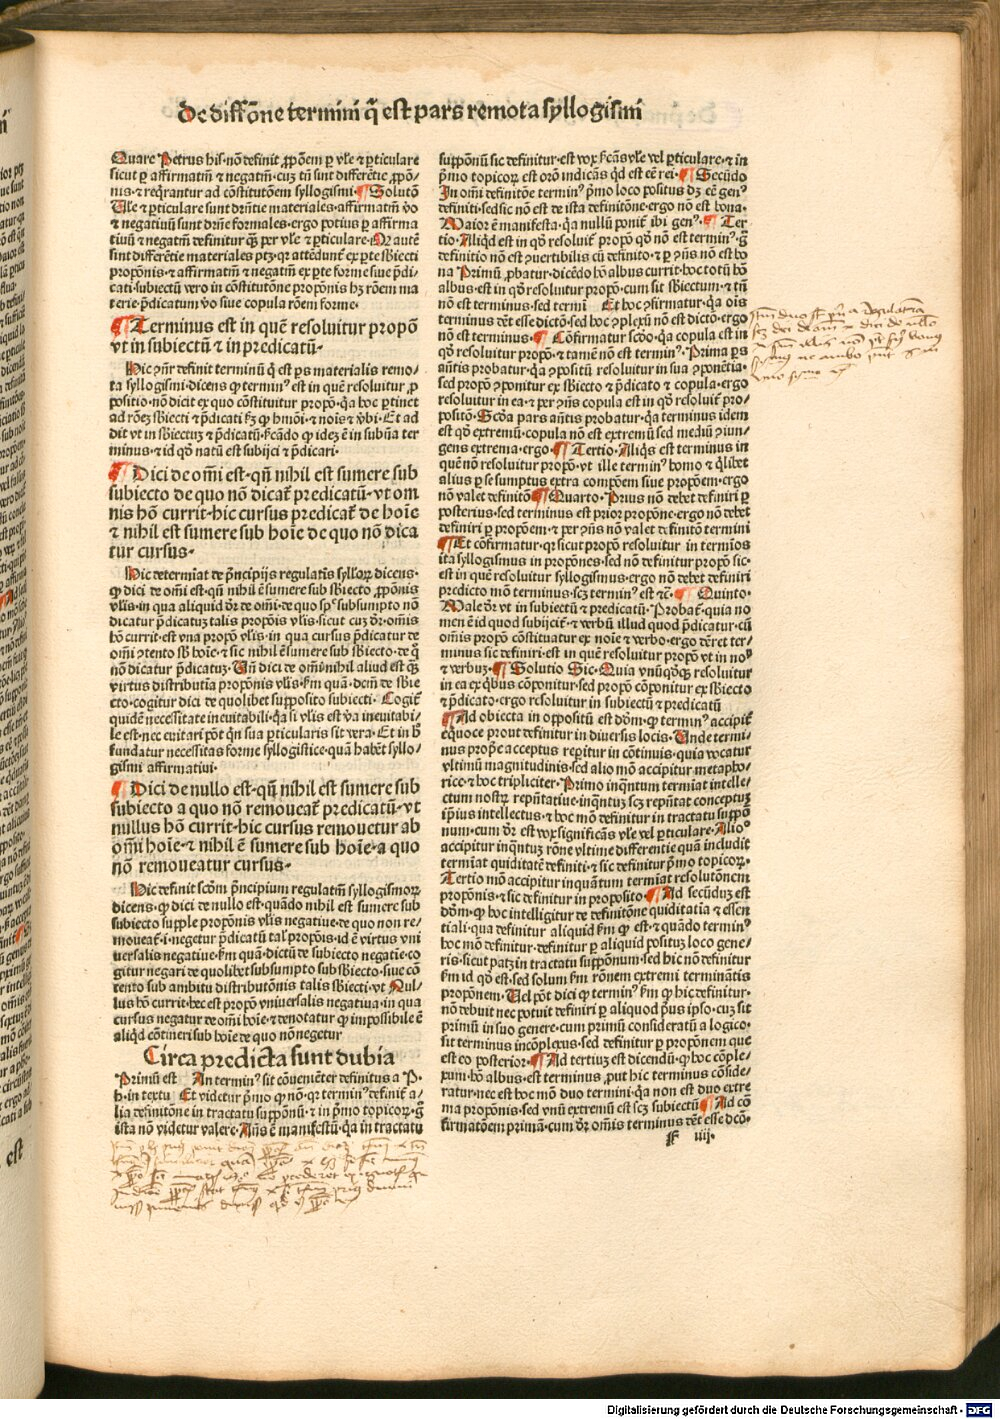 De diffōne termini q̄ est pars remota syllogismi
Quare Petrus his. nō definit ꝓpōem ꝑ vl̄e ⁊ ꝑticulare
sicut ꝑ affirmatm̄ ⁊ negatm̄. cuꝫ tn̄ sunt differētie ꝓpō-
nis. ⁊ reqͥrantur ad cōstitutōem syllogismi. ¶ Solutō
Vl̄e ⁊ ꝑticulare sunt drn̄tie materiales. affirmatm̄ v̄o
⁊ negatiuū sunt drn̄e formales. ergo potius ꝑ affirma
tiuū ⁊ negatm̄ definitur qͣꝫ per vl̄e ⁊ ꝑticulare. Qꝫ autē
sint differētie materiales ptꝫ. qꝛ attēdunt̄ ex ꝑte sbiecti
propōnis. ⁊ affirmatm̄ ⁊ negatm̄ ex ꝑte forme siue p̄di-
cati. subiectū vero in cōstitutōne propōnis hꝫ rōem ma
terie. p̄dicatum v̄o siue copula rōem forme.
¶ Terminus est in quē resoluitur propō
vt in subiectū ⁊ in predicatū.
Hic ↄn̄r definit terminū q̄ est ps materialis remo-
ta syllogismi. dicens ꝙ terminꝰ est in quē resoluitur ꝓ
positio. nō dicit ex quo cōstituitur propō. qꝛ hoc ꝑtinet
ad rōeꝫ sbiecti ⁊ p̄dicati. Et ad
dit vt in sbiectuꝫ ⁊ p̄dicatū. ſcādo ꝙ ideꝫ ē in subn̄a ter
minus. ⁊ id qd̄ natū est subijci ⁊ p̄dicari.
¶ Dici de om̄i est. qn̄ nihil est sumere sub
subiecto de quo nō dicat̄ predicatū. vt om
nis hō currit. hic cursus predicat̄ de hoīe
⁊ nihil est sumere sub hoīe de quo nō dica
tur cursus.
Hic determīat de p̄ncipijs regulatīs sylloꝝ dicens.
ꝙ dici de om̄i est. qn̄ nihil ē sumere sub sbiecto ꝓpōnis
vl̄is. in qua aliquid dr̄ de om̄i. de quo subsumpto nō
dicatur p̄dicatuꝫ talis propōis vl̄is. sicut cuꝫ dr̄. omīs
hō currit. est vna propō vl̄is. in qua cursus p̄dicatur de
om̄i ↄtento sb̄ hoīe. ⁊ sic nihil ē sumere sub sbiecto. de qͦ
nō dicatur p̄dicatuꝫ. Vn̄ dici de om̄i nihil aliud est qͣꝫ
virtus distributia propōnis vl̄is. ſm quā. dcm̄ de sbie
cto. cogitur dici de quolibet supposito subiecti. Cogit̄
quidē necessitate ineuitabili. qꝛ si vl̄is est v̄a ineuitabi-
le est. nec euitari pōt qn̄ sua ꝑticularis sit vera. Et in h̄
fundatur necessitas forme syllogistice. quā habēt syllo-
gismi affirmatiui.
¶ Dici de nullo est. qn̄ nihil est sumere sub
subiecto a quo nō remoueat̄ predicatū. vt
nullus hō currit. hic cursus remouetur ab
om̄i hoīe. ⁊ nihil ē sumere sub hoīe. a quo
nō remoueatur cursus.
Hic definit scd̄m p̄ncipium regulatm̄ syllogismoꝝ
dicens. ꝙ dici de nullo est. quādo nihil est sumere sub
subiecto supple propōnis vl̄is negatiue. de quo non re-
moueat̄. i. negetur p̄dicatū tal̄ propōis. id ē virtus vni
uersalis negatiue. ſm quā. dictū de subiecto negatīe. co
gitur negari de quolibet subsumpto sub sbiecto. siue cō
tento sub ambitu distributōnis talis sbiecti. vt Nul-
lus hō currit. hec est propō vniuersalis negatiua. in qua
cursus negatur de om̄i hoīe. ⁊ denotatur ꝙ impossibile ē
aliqͥd cōtineri sub hoīe de quo nō negetur
Circa predicta sunt dubia
Primū est An terminꝰ sit cōuenienter definitus a P.
h. in textu Et videtur pͥmo ꝙ nō. qꝛ terminꝰ definit̄ a-
lia definitōne in tractatu supp̄onū. ⁊ in pͥmo topicoꝝ. gͦ
ista nō videtur valere. Añs ē manifestū. qꝛ in tractatu
supp̄onū sic definitur. est vox ſcāns vl̄e vel ꝑticulare. ⁊ in
pͥmo topicoꝝ est orō indicās qͥd est eē rei. ¶ Secūdo
In om̄i definitōe terminꝰ pͥmo loco positus dꝫ eē genꝰ
definiti. sed sic nō est de ista definitōne. ergo nō est bona.
Maior ē manifesta. qꝛ nullū ponit̄ ibi genꝰ. ¶ Ter
tio. Aliqͥd est in qd̄ resoluit̄ propō qd̄ nō est terminꝰ. gͦ
definitio nō est ↄuertibilis cū definito. ⁊ ꝑ ↄn̄s nō est bo
na Primū ꝓbatur. dicēdo hō albus currit. hoc totū hō
albus. est in qd̄ resoluit̄ propō. cum sit sbiectum. ⁊ tn̄
nō est terminus. sed termī Et hoc ↄfirmatur. qꝛ oīs
terminus dꝫ esse dictō. sed hoc ↄplexū nō est dictō. ergo
nō est terminus. ¶ Cōfirmatur scd̄o. qꝛ copula est in
qd̄ resoluitur propō. ⁊ tamē nō est terminꝰ. Prima ps
añtis probatur. qꝛ ↄpositū resoluitur in sua ↄponētia.
sed propō ↄponitur ex sbiecto ⁊ p̄dicato ⁊ copula. ergo
resoluitur in ea. ⁊ per ↄn̄s copula est in qd̄ resoluit̄ pro-
positō. Scd̄a pars añtis probatur. qꝛ terminus idem
est qd̄ extremū. copula nō est extremū sed mediū ↄiun-
gens extrema. ergo. ¶ Tertio. Aliqͥs est terminus in
quē nō resoluitur propō. vt ille terminꝰ homo ⁊ qͥlibet
alius ꝑ se sumptus extra compōem siue propōem. ergo
nō valet definitō. ¶ Quarto. Prius nō debet definiri ꝑ
posterius. sed terminus est prior propōne. ergo nō debet
definiri ꝑ propōem. ⁊ per ↄn̄s nō valet definitō termini
¶ Et cōfirmatur. qꝛ sicut propō resoluitur in terminos
ita syllogismus in propōnes. sed nō definitur propō sic.
est in quē resoluitur syllogismus. ergo nō debet definiri
predicto mō terminus. scꝫ terminꝰ est ⁊c̄. ¶ Quinto.
Male dr̄ vt in subiectū ⁊ predicatū. Probat̄. quia no
men ē id quod subijcit̄ ⁊ verbū illud quod p̄dicatur. cū
om̄is propō cōstituatur ex noīe ⁊ verbo. ergo dēret ter-
minus sic definiri. est in quē resoluitur propō vt in noꝰ
⁊ verbuꝫ. ¶ Solutio Sic. Quia vnūqd̄qꝫ resoluitur
in ea ex qͥbus cōponitur. sed propō cōponitur ex sbiecto
⁊ p̄dicato. ergo resoluitur in subiectū ⁊ predicatū
¶ Ad obiecta in oppositū est dōm. ꝙ terminꝰ accipit̄
eqͥuoce prout definitur in diuersis locis. Unde termi-
nus prop̄e acceptus reꝑitur in cōtinuis. quia vocatur
vltimū magnitudinis. sed alio mō accipitur metapho-
rice. ⁊ hoc tripliciter. Primo inqͣntum termīat intelle-
ctum nostꝝ repn̄tatiue. inqͣntuꝫ scꝫ repn̄tat conceptuꝫ
ip̄ius intellectus. ⁊ hoc mō definitur in tractatu suppō
num. cum dr̄ est vox significās vl̄e vel ꝑticulare. Alio
accipitur inqͣntuꝫ rōne vltime differentie quā includit
termīat quiditatē definiti. ⁊ sic definitur pͥmo topicoꝝ.
Tertio mō accipitur inquātum termīat resolutōnem
propōnis. ⁊ sic definitur in proposito. ¶ Ad secūduꝫ est
dōm. ꝙ hoc intelligitur de definitōne quiditatīa ⁊ essen
tiali. qua definitur aliquid ſm ꝙ est. ⁊ quādo terminꝰ
hoc mō definitur. definitur ꝑ aliquid posituꝫ loco gene-
ris. sicut patꝫ in tractatu supp̄onum. sed hic nō definitur
ſm id qd̄ est. sed solum ſm rōnem extremi terminātis
propōnem. Vel pōt dici ꝙ terminꝰ ſm ꝙ hic definitur.
nō debuit nec potuit definiri ꝑ aliquod pͥus ipso. cuꝫ sit
primū in suo genere. cum primū consideratū a logico.
sit terminus incōplexus. sed definitur ꝑ propōnem que
est eo posterior. ¶ Ad tertiuꝫ est dicendū. ꝙ hoc cōple-
xum. hō albus. est terminus. put hic terminus cōside-
ratur. nec est hoc mō duo termini. qꝛ non est duo extre
ma propōnis. sed vnū extremū est scꝫ subiectū ¶ Ad cō
firmatōem primā. cum dr̄ om̄is terminus dꝫ esse dcō.
ff iiij.
Digitalisierung gefördert durch die Deutsche Forschungsgemeinschaft - DFG